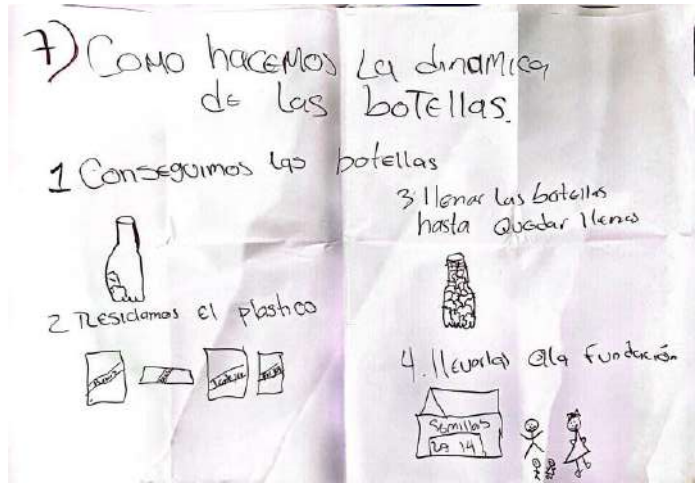 7) Como hacemos La dinamica
de las botellas.
1 Conseguimos las botellas
2 Residamos el plastico
3. llenar las botellas
hasta quedar llenas
4. llevarlas alla fundación
Semillas